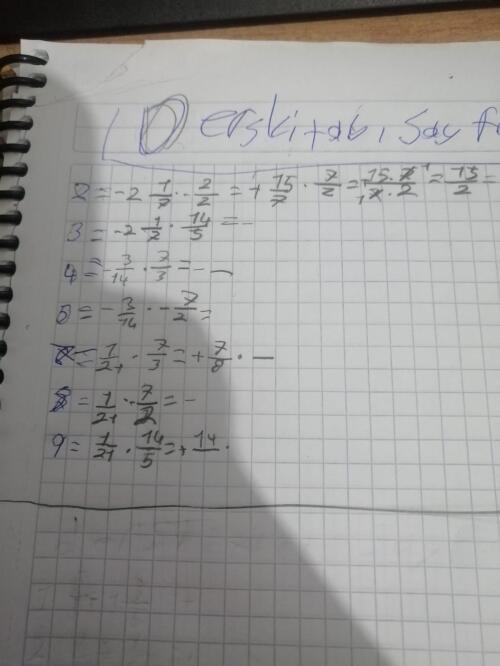 Ders kitabı, Say
2 = -2 1/7 · - 2/2 = + 15/7 · 7/2 = 15·7/7·2 = 15/2 =
3 = -2 1/7 · 14/5 = -
4 = - 3/14 · 7/3 = - —
5 = - 3/14 · - 7/2 =
= 1/21 · 7/3 = + 7/8 · —
8 = 1/21 · - 7/2 = -
9 = 1/21 · 14/5 = + 14 ·